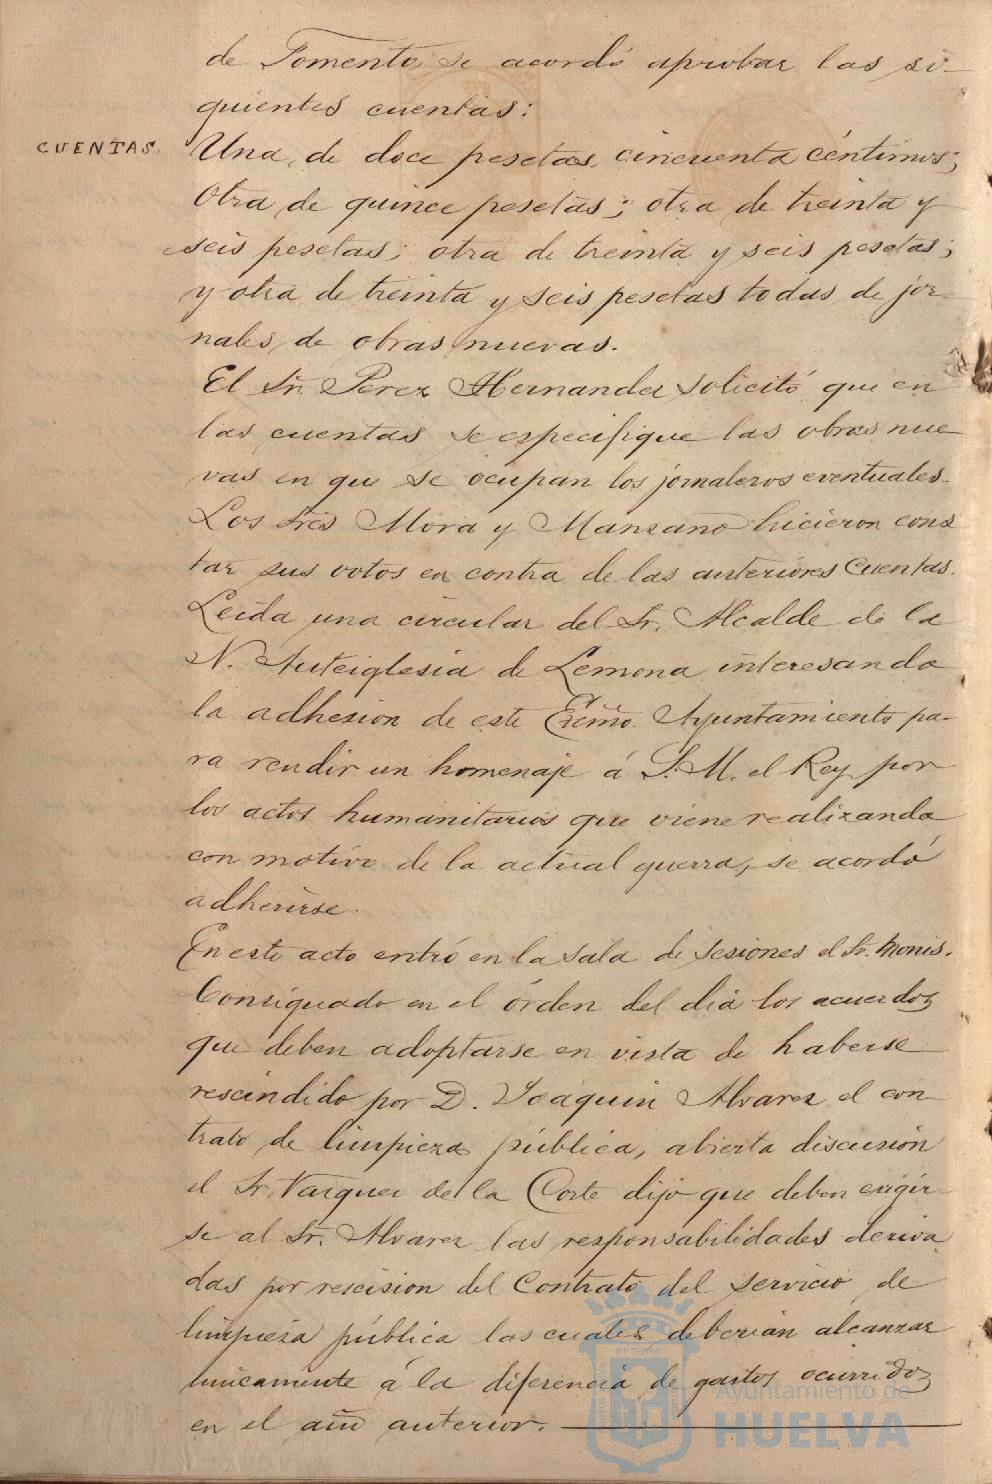 de Fomento, se acordó aprobar las si-
guientes cuentas:
CUENTAS.
Una, de doce pesetas cincuenta céntimos;
Otra de quince pesetas; otra de treinta y
seis pesetas; otra de treinta y seis pesetas;
y otra de treinta y seis pesetas todas de jor-
nales de obras nuevas.
El Sr. Perez Hernandez solicitó que en
las cuentas se especifique las obras nue
vas en que se ocupan los jornaleros eventuales.
Los Sres Mora y Manzano hicieron cons
tar sus votos en contra de las anteriores Cuentas.
Leida una circular del Sr. Alcalde de la
N. Anteiglesia de Lemona interesando
la adhesion de este Excmo. Ayuntamiento pa-
ra rendir un homenaje á S. M. el Rey por
los actos humanitarios que viene realizando
con motivo de la actual guerra, se acordó
adherirse.
En este acto entró en la sala de sesiones el Sr. Monis.
Consignado en el órden del dia los acuerdos
que deben adoptarse en vista de haberse
rescindido por D. Joaquin Alvarez el con-
trato de limpieza pública, abierta discusión
el Sr. Vazquez de la Corte dijo que deben exigir-
se al Sr. Alvarez las responsabilidades deriva
das por rescision del Contrato del servicio de
limpieza pública las cuales deberian alcanzar
unicamente á la diferencia de gastos ocurridos
en el año anterior.
Ayuntamiento de
HUELVA